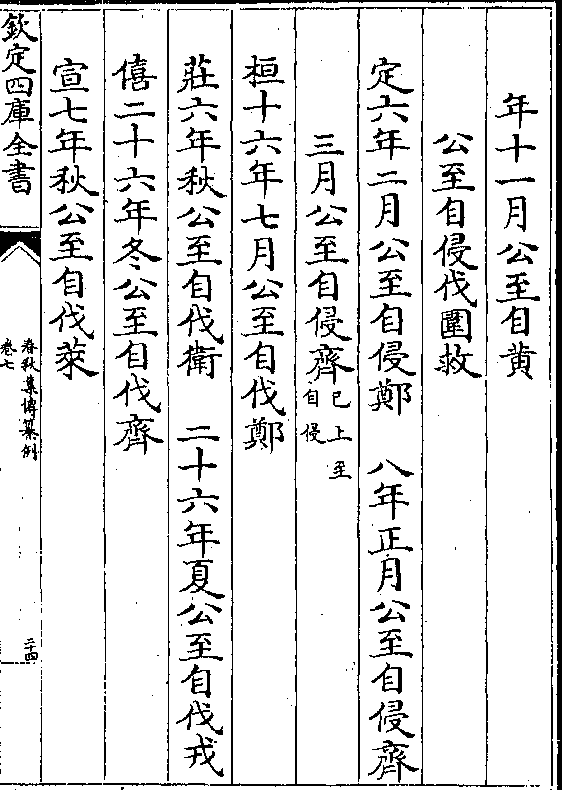 年十一月公至自黄
公至自侵伐圍救
定六年二月公至自侵鄭　八年正月公至自侵齊
三月公至自侵齊已上至自侵
桓十六年七月公至自伐鄭
莊六年秋公至自伐衛　二十六年夏公至自伐戎
僖二十六年冬公至自伐齊
宣七年秋公至自伐萊
欽定四庫全書
春秋集傳纂例
卷七
二十四